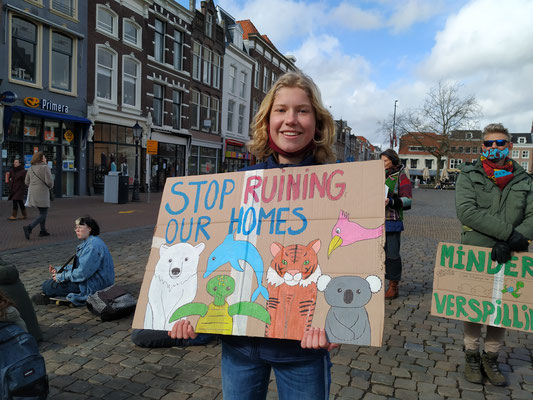 Primera
STOP RUINING
OUR HOMES
MINDER
VERSPILLIN